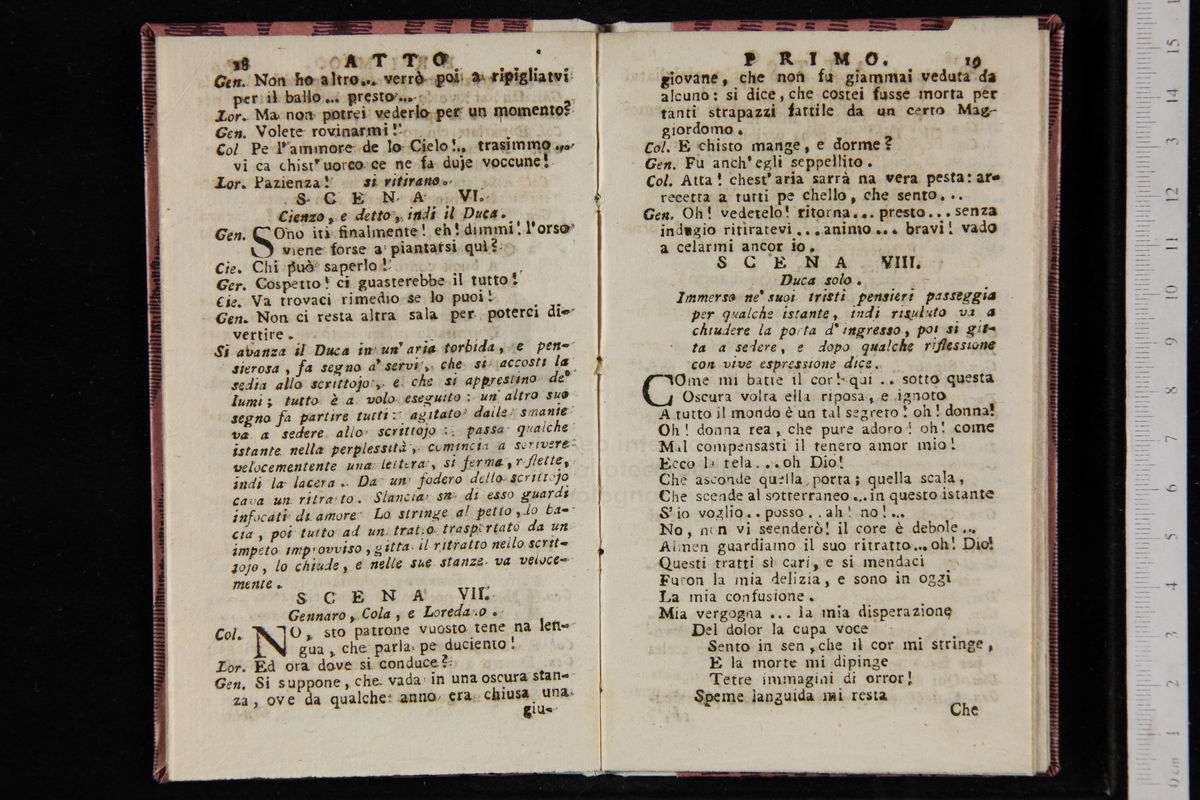 18 ATTO
Gen. Non ho altro... verrò poi a ripigliarvi
per il ballo... presto...
Lor. Ma non potrei vederlo per un momento?
Gen. Volete rovinarmi!
Col. Pe l'ammore de lo Cielo!.. trasimmo...
vi ca chist'uorco ce ne fa duje voccune!
Lor. Pazienza! si ritirano.
SCENA VI.
Cienzo, e detto, indi il Duca.
Gen. SOno iti finalmente! eh! dimmi! l'orso
viene forse a piantarsi quì?
Cie. Chi può saperlo!
Ger. Cospetto! ci guasterebbe il tutto!
Cie. Va trovaci rimedio se lo puoi!
Gen. Non ci resta altra sala per poterci di-
vertire.
Si avanza il Duca in un'aria torbida, e pen-
sierosa, fa segno a' servi, che si accosti la
sedia allo scrittojo, e che si apprestino de'
lumi; tutto è a volo eseguito: un altro suo
segno fa partire tutti: agitato dalle smanie
va a sedere allo scrittojo: passa qualche
istante nella perplessità, comincia a scrivere
velocementente una lettera, si ferma, rflette,
indi la lacera. Da un fodero dello scrittojo
cava un ritratto. Slancia su di esso guardi
infocati di amore Lo stringe al petto, lo ba-
cia, poi tutto ad un tratto trasportato da un
impeto improvviso, gitta il ritratto nello scrit-
tojo, lo chiude, e nelle sue stanze va veloce-
mente.
SCENA VII.
Gennaro, Cola, e Loredano.
Col. NO, sto patrone vuosto tene na len-
gua, che parla pe duciento!
Lor. Ed ora dove si conduce?
Gen. Si suppone, che vada in una oscura stan-
za, ove da qualche anno era chiusa una
giu-
PRIMO. 19
giovane, che non fu giammai veduta da
alcuno: si dice, che costei fusse morta per
tanti strapazzi fattile da un certo Mag-
giordomo.
Col. E chisto mange, e dorme?
Gen. Fu anch'egli seppellito.
Col. Atta! chest'aria sarrà na vera pesta: ar-
recetta a tutti pe chello, che sento...
Gen. Oh! vedetelo! ritorna... presto... senza
indugio ritiratevi... animo... bravi! vado
a celarmi ancor io.
SCENA VIII.
Duca solo.
Immerso ne' suoi tristi pensieri passeggia
per qualche istante, indi risuluto va a
chiudere la porta d'ingresso, poi si git-
ta a sedere, e dopo qualche riflessione
con vive espressione dice.
COme mi batte il cor! qui .. sotto questa
Oscura volta ella riposa, e ignoto
A tutto il mondo è un tal segreto! oh! donna!
Oh! donna rea, che pure adoro! oh! come
Mal compensasti il tenero amor mio!
Ecco la tela... oh Dio!
Che asconde quella porta; quella scala,
Che scende al sotterraneo... in questo istante
S'io voglio.. posso.. ah! no!...
No, non vi scenderò! il core è debole...
Almen guardiamo il suo ritratto... oh! Dio!
Questi tratti sì cari, e si mendaci
Furon la mia delizia, e sono in oggi
La mia confusione.
Mia vergogna... la mia disperazione
Del dolor la cupa voce
Sento in sen, che il cor mi stringe,
E la morte mi dipinge
Tetre immagini di orror!
Speme languida mi resta
Che
0 cm 1 2 3 4 5 6 7 8 9 10 11 12 13 14 15